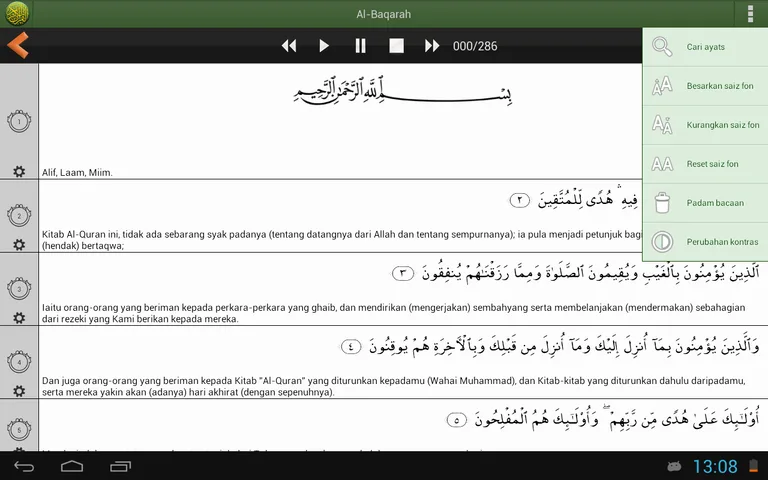 Al-Baqarah
000/286
Cari ayats
Besarkan saiz fon
Kurangkan saiz fon
Reset saiz fon
Padam bacaan
Perubahan kontras
بِسْمِ ٱللَّهِ ٱلرَّحْمَٰنِ ٱلرَّحِيمِ
1
Alif, Laam, Miim.
2
فِيهِ ۛ هُدًى لِّلْمُتَّقِينَ ٢
Kitab Al-Quran ini, tidak ada sebarang syak padanya (tentang datangnya dari Allah dan tentang sempurnanya); ia pula menjadi petunjuk bagi
(hendak) bertaqwa;
3
ٱلَّذِينَ يُؤْمِنُونَ بِٱلْغَيْبِ وَيُقِيمُونَ ٱلصَّلَوٰةَ وَمِمَّا رَزَقْنَٰهُمْ يُنفِقُونَ ٣
Iaitu orang-orang yang beriman kepada perkara-perkara yang ghaib, dan mendirikan (mengerjakan) sembahyang serta membelanjakan (mendermakan) sebahagian
dari rezeki yang Kami berikan kepada mereka.
4
وَٱلَّذِينَ يُؤْمِنُونَ بِمَآ أُنزِلَ إِلَيْكَ وَمَآ أُنزِلَ مِن قَبْلِكَ وَبِٱلْءَاخِرَةِ هُمْ يُوقِنُونَ ٤
Dan juga orang-orang yang beriman kepada Kitab "Al-Quran" yang diturunkan kepadamu (Wahai Muhammad), dan Kitab-kitab yang diturunkan dahulu daripadamu,
serta mereka yakin akan (adanya) hari akhirat (dengan sepenuhnya).
5
أُو۟لَٰٓئِكَ عَلَىٰ هُدًى مِّن رَّبِّهِمْ ۖ وَأُو۟لَٰٓئِكَ هُمُ ٱلْمُفْلِحُونَ ٥
13:08